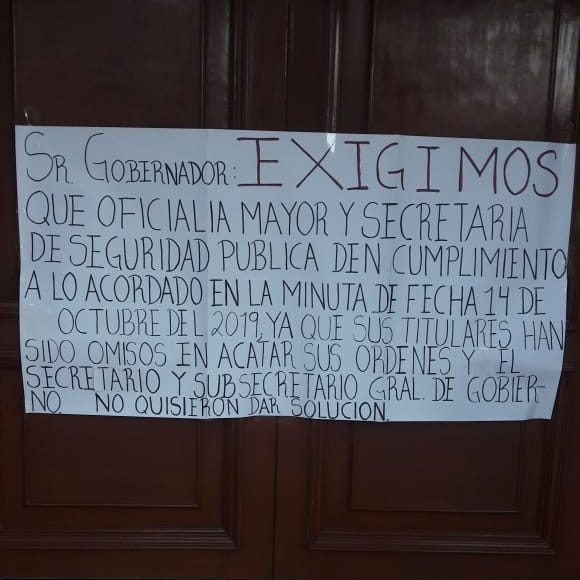 SR. GOBERNADOR: EXIGIMOS
QUE OFICIALIA MAYOR Y SECRETARIA
DE SEGURIDAD PUBLICA DEN CUMPLIMIENTO
A LO ACORDADO EN LA MINUTA DE FECHA 14 DE
OCTUBRE DEL 2019, YA QUE SUS TITULARES HAN
SIDO OMISOS EN ACATAR SUS ORDENES Y EL
SECRETARIO Y SUBSECRETARIO GRAL. DE GOBIER-
NO. NO QUISIERON DAR SOLUCION.